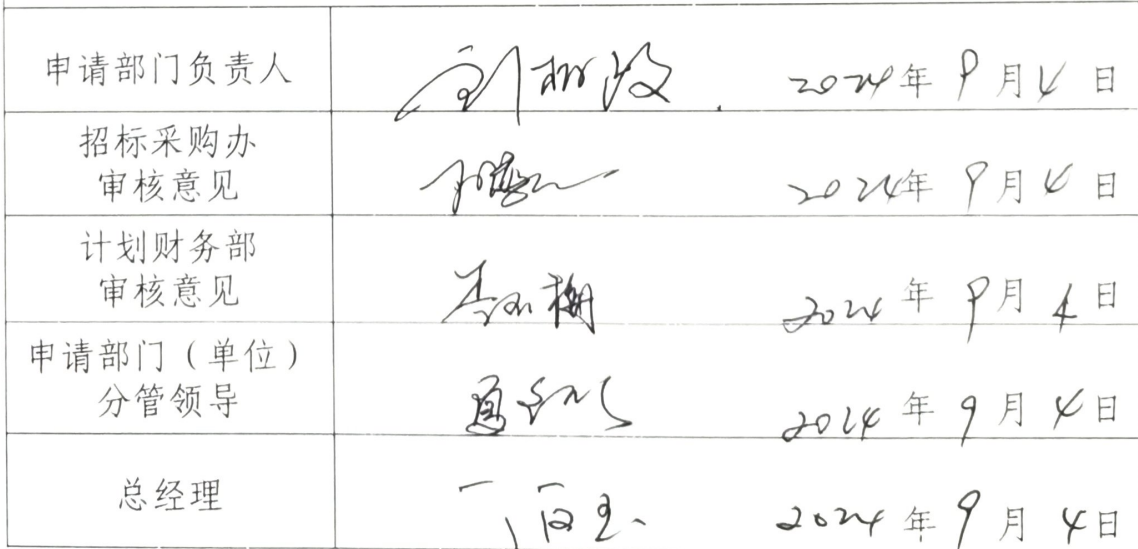 申请部门负责人 2024年9月4日
招标采购办
审核意见 2024年9月4日
计划财务部
审核意见 2024年9月4日
申请部门（单位）
分管领导 2024年9月4日
总经理 2024年9月4日